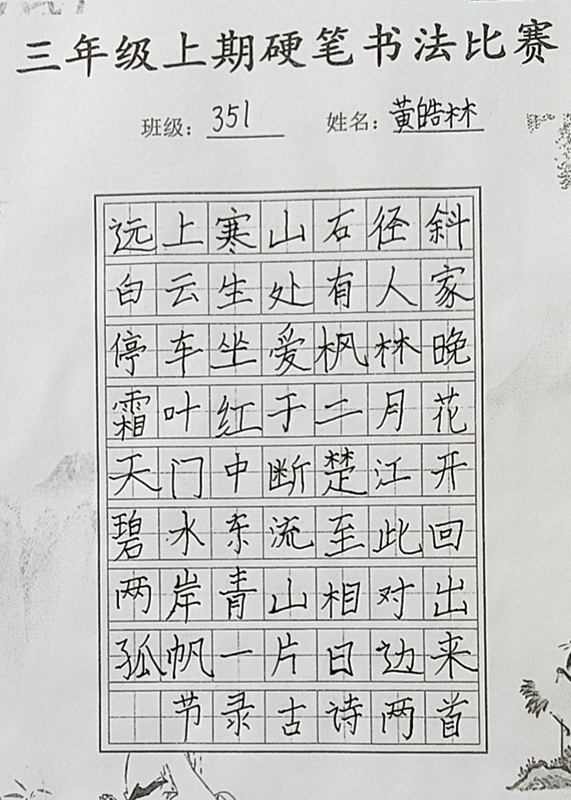 三年级上期硬笔书法比赛
班级：351 姓名：黄皓林
远上寒山石径斜
白云生处有人家
停车坐爱枫林晚
霜叶红于二月花
天门中断楚江开
碧水东流至此回
两岸青山相对出
孤帆一片日边来
节录古诗两首